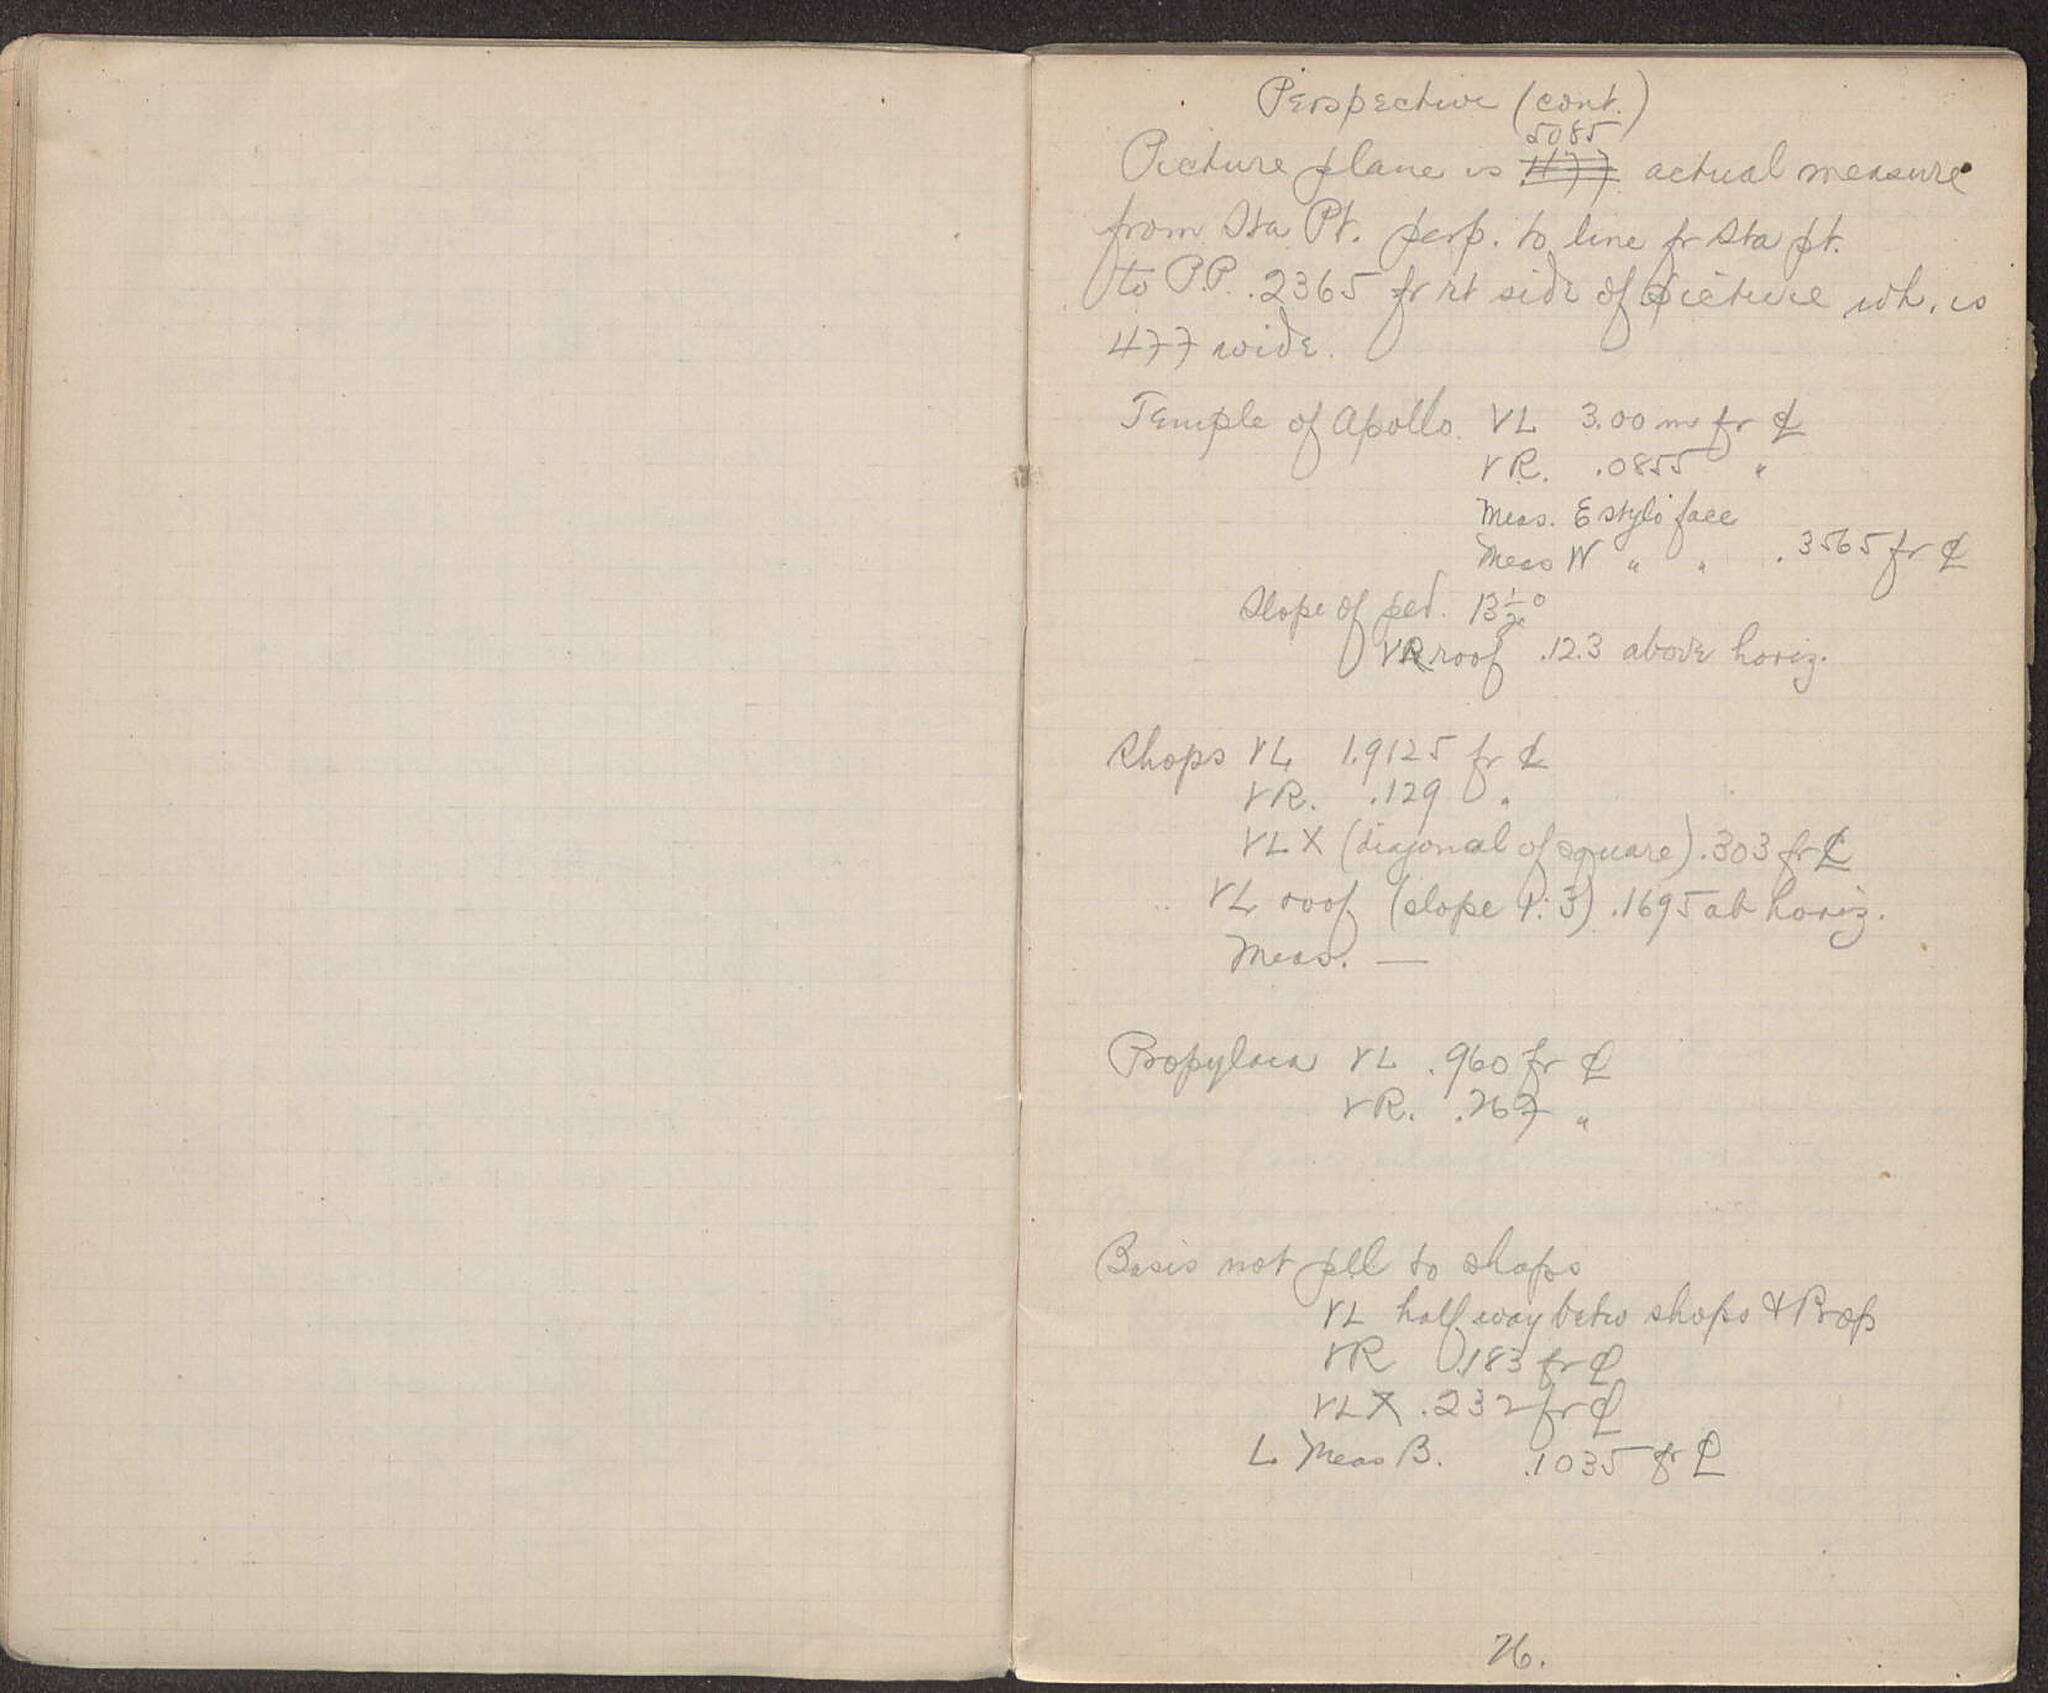 Perspective (cont.)
5085
Picture plane is .477 actual measure
from Sta Pt. perp. to line fr Sta pt.
to P.P. .2365 fr rt side of picture wh. is
477 wide.
Temple of Apollo. VL 3.00 m fr ℄
VR. .0855 "
Meas. E stylo face
Meas W " " .3565 fr ℄
Slope of ped. 13½°
VR roof .123 above horiz.
Shops VL 1.9125 fr ℄
VR. .129 "
VLX (diagonal of square) .303 fr ℄
VL roof (slope 1:3) .1695 ab horiz.
Meas. —
Propylaea VL .960 fr ℄
VR. .267 "
Basis not pll to shops
VL half way betw shops & Prop
VR .183 fr ℄
VLX .232 fr ℄
L. Meas B. .1035 fr ℄
26.